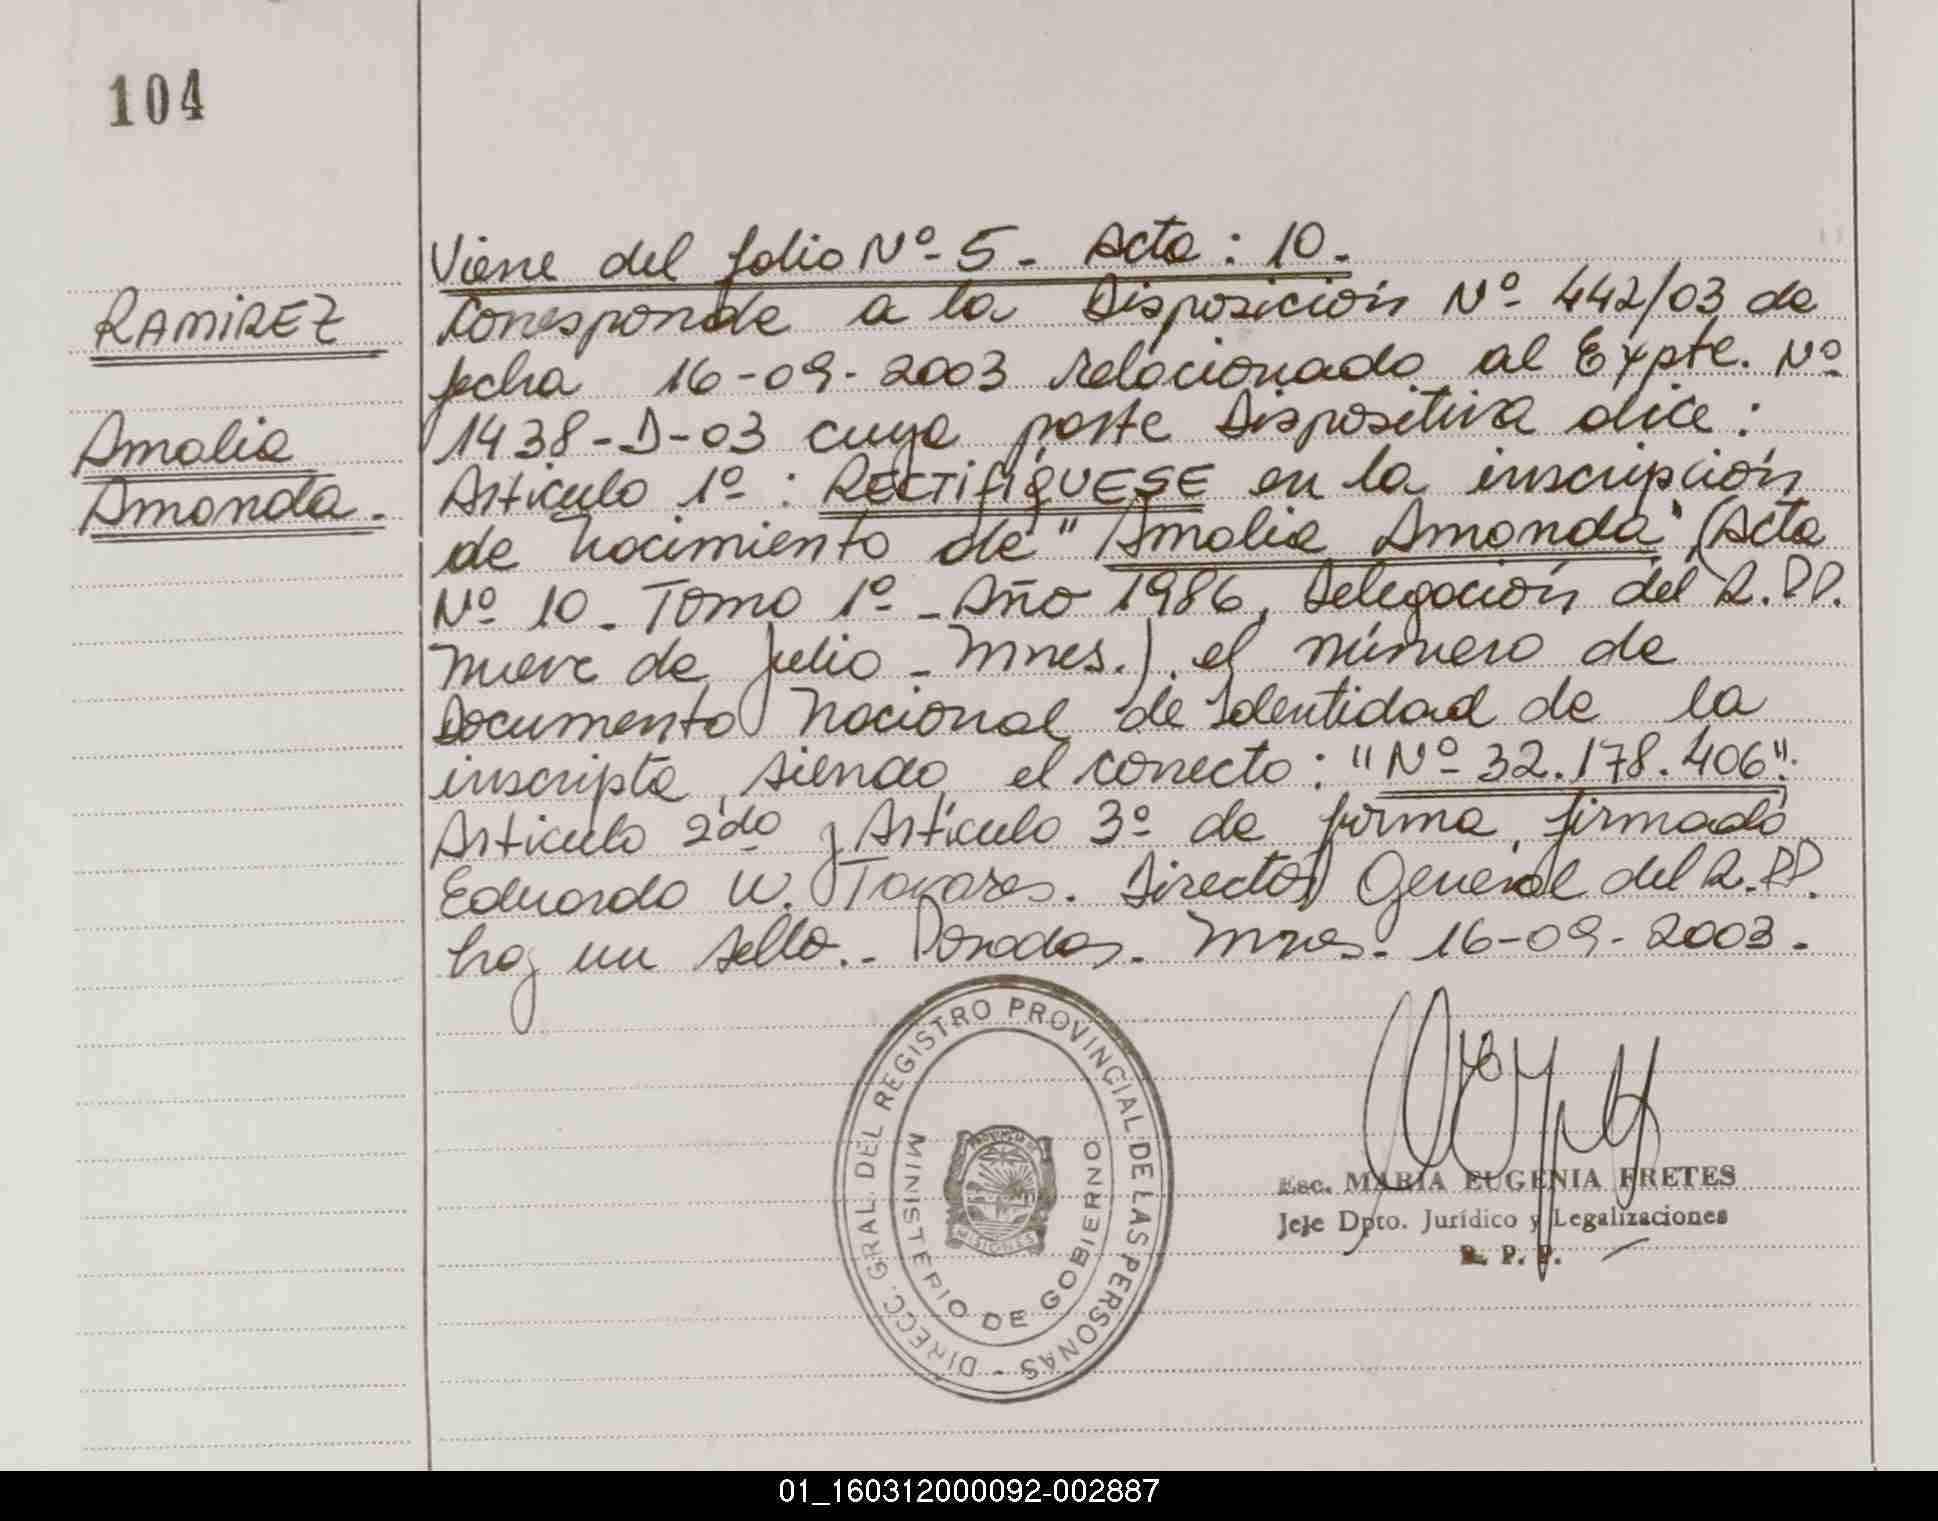 104
RAMIREZ
Amalia
Amanda.
Viene del folio Nº 5. Acta: 10.
Corresponde a la Disposición Nº 442/03 de
fecha 16-09-2003 relacionado al Expte. Nº
1438-D-03 cuya parte Dispositiva dice:
Artículo 1º: RECTIFIQUESE en la inscripción
de nacimiento de "Amalia Amanda" (Acta
Nº 10 - Tomo 1º - Año 1986, Delegación del R.PP.
Nueve de Julio - Mnes.) el número de
Documento Nacional de Identidad de la
inscripta, siendo el correcto: "Nº 32.178.406".
Artículo 2do y Artículo 3º de forma, firmado
Eduardo W. Tavares. Director General del R.PP.
hay un sello.- Posadas. Mnes. 16-09-2003.
DIRECC. GRAL. DEL REGISTRO PROVINCIAL DE LAS PERSONAS -
MINISTERIO DE GOBIERNO
PROVINCIA DE
MISIONES
Esc. MARIA EUGENIA FRETES
Jefe Dpto. Jurídico y Legalizaciones
R. P. P.
01_160312000092-002887